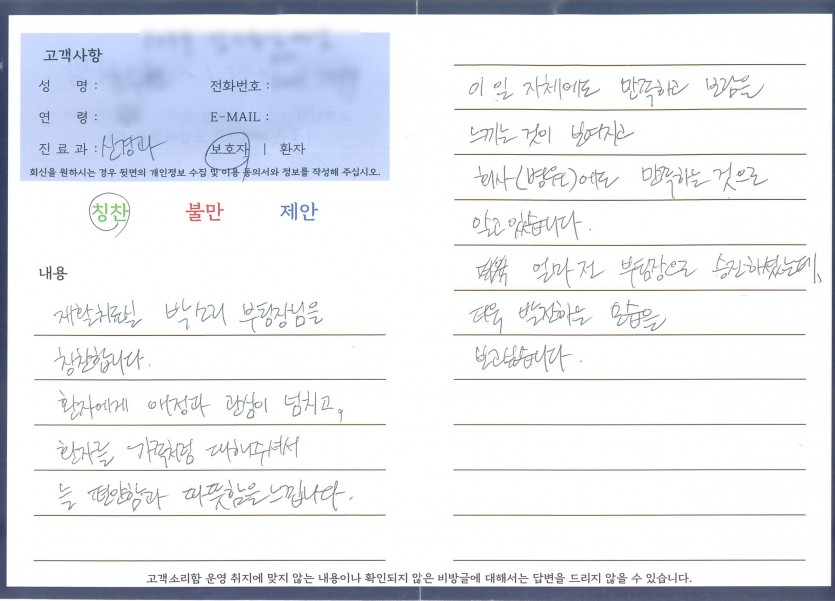 고객사항
성 명 :
전화번호 :
연 령 :
E-MAIL :
진료과 : 신경과
보호자 | 환자
회신을 원하시는 경우 뒷면의 개인정보 수집 및 이용 동의서와 정보를 작성해 주십시오.
칭찬 불만 제안
내용
재활치료실 박소리 부팀장님을
칭찬합니다.
환자에게 애정과 관심이 넘치고,
환자를 가족처럼 대해주셔서
늘 편안함과 따뜻함을 느낍니다.
이 일 자체에도 만족하고 보람을
느끼는 것이 보여지고
회사(병원)에도 만족하는 것으로
알고 있습니다.
얼마 전 부팀장으로 승진하셨는데,
더욱 발전하는 모습을
보고싶습니다.
고객소리함 운영 취지에 맞지 않는 내용이나 확인되지 않은 비방글에 대해서는 답변을 드리지 않을 수 있습니다.